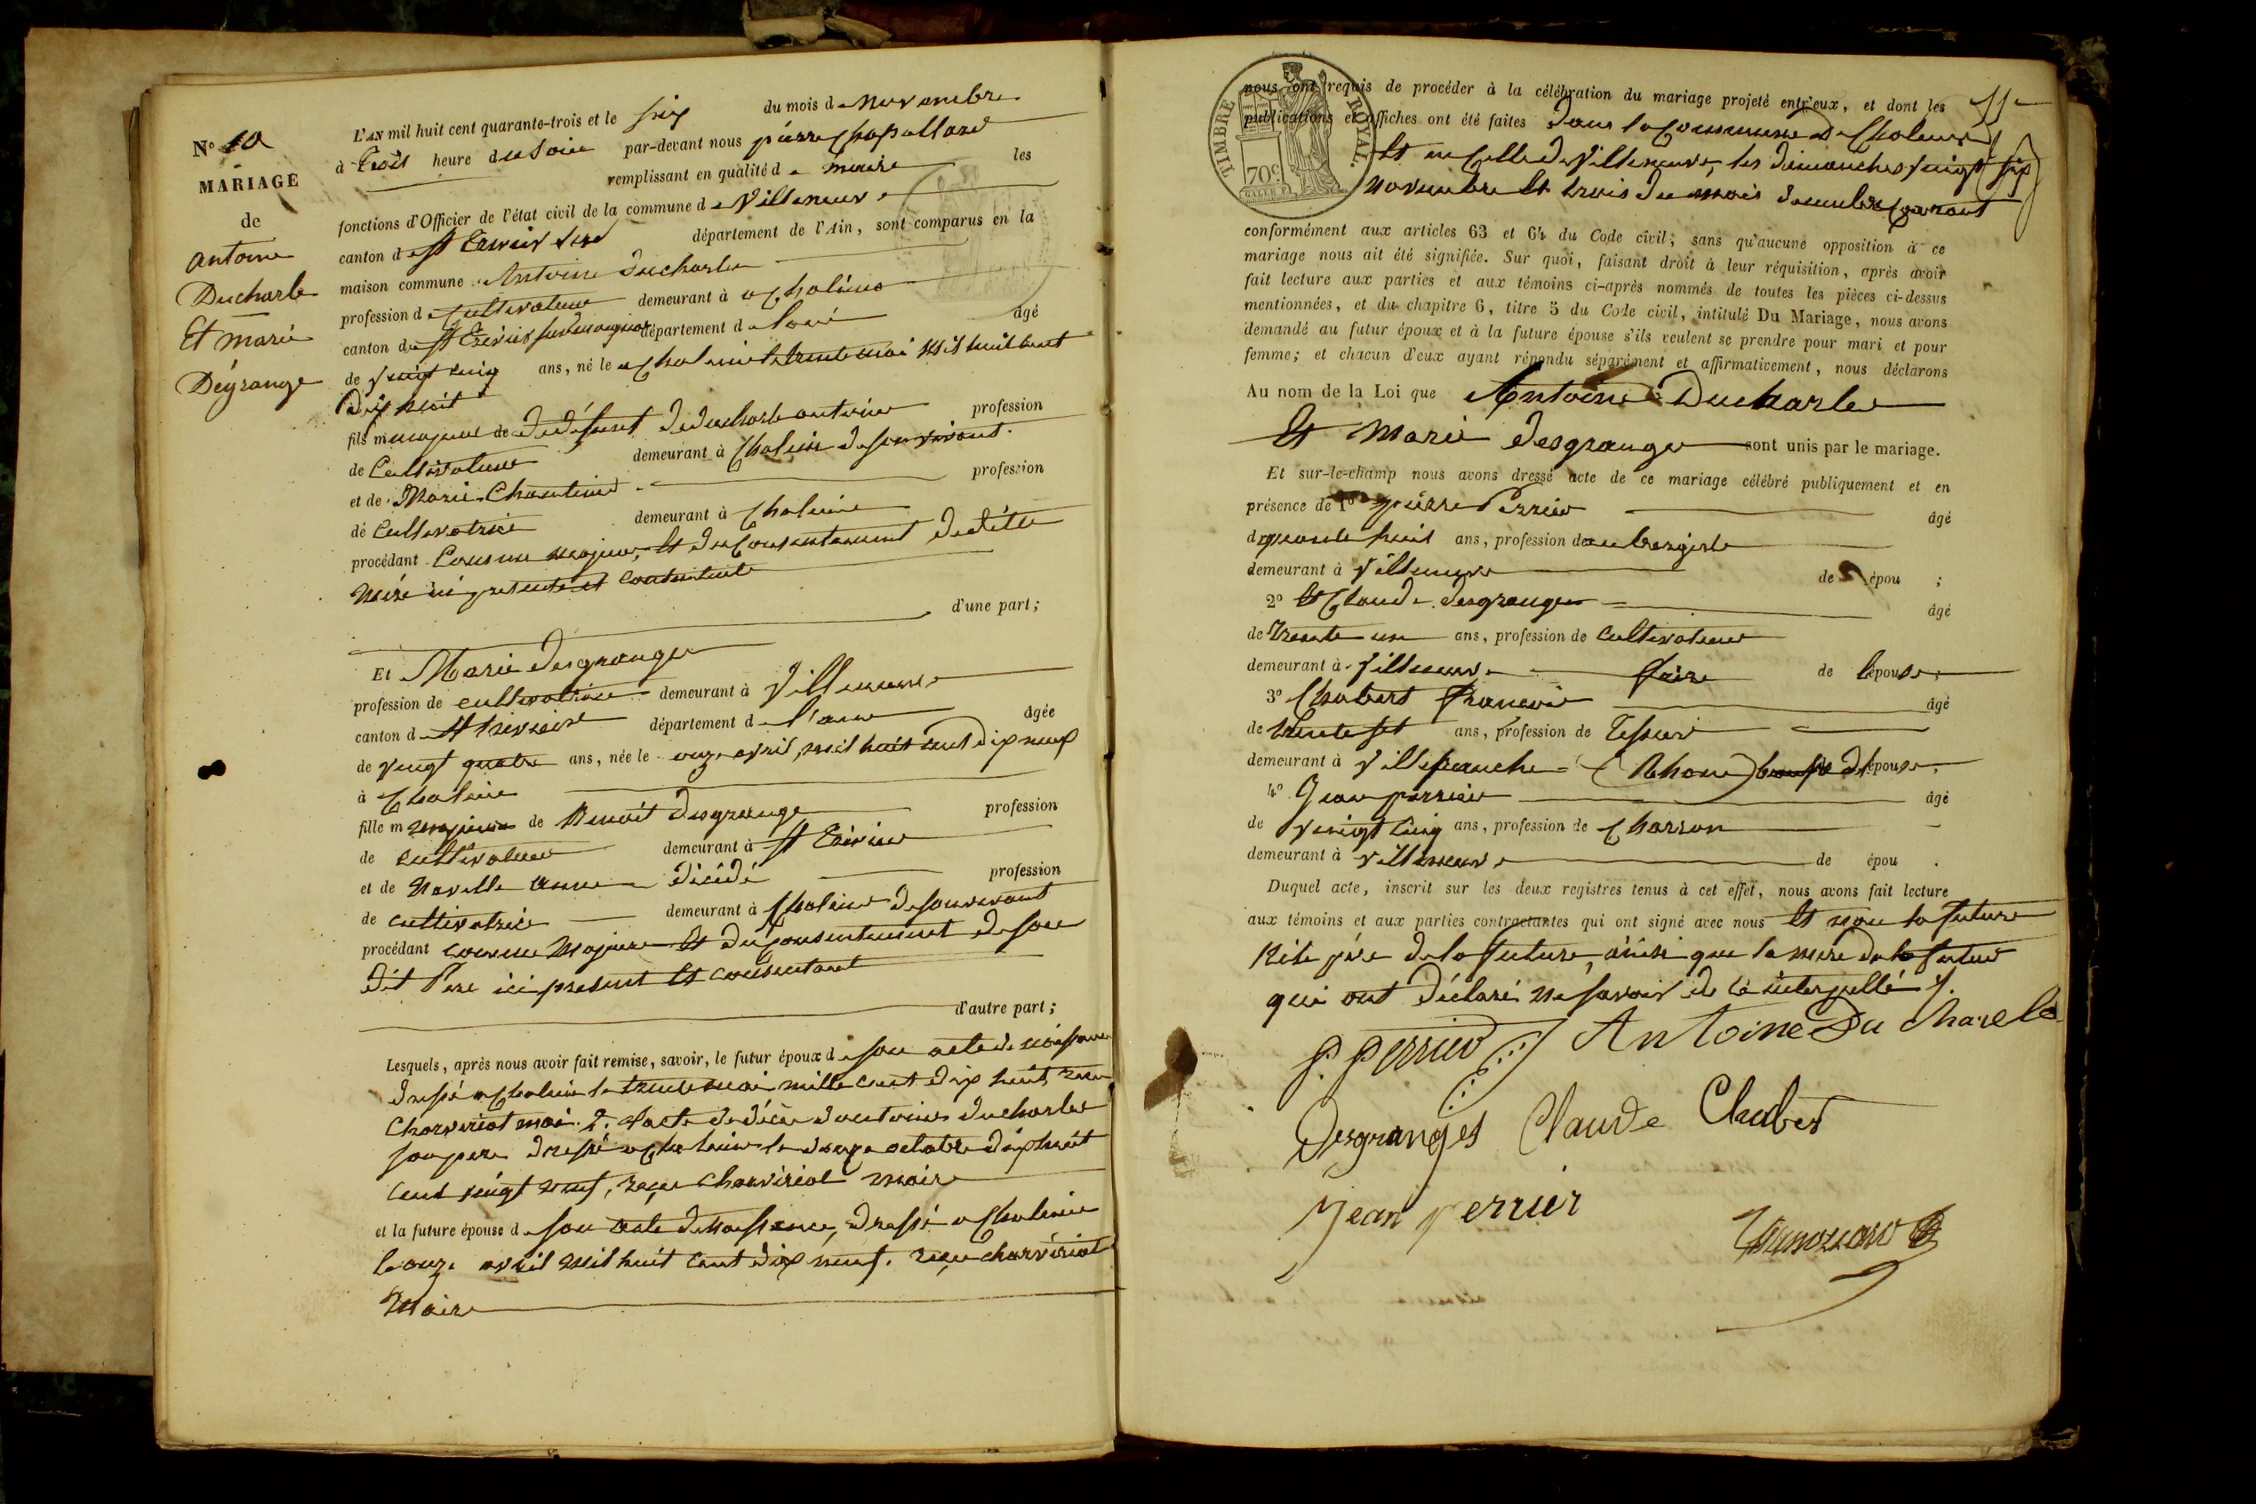 N° 10
MARIAGE
de
antoine
Ducharle
Et marie
Dégrange
L'AN mil huit cent quarante-trois et le six du mois de novembre
à trois heure du soire par-devant nous pierre Chapollard
remplissant en qualité de maire les
fonctions d'Officier de l'état civil de la commune de Villeneuve
canton de St Trivier département de l'Ain, sont comparus en la
maison commune Antoine Ducharle
profession de Cultivateur demeurant à Chaleins
canton de St Trivier département de âgé
de vingt cinq ans, né le a Chaleins le trente mai mil huit cent
dix huit
fils majeur de du défunt de ducharle antoine profession
de Cultivateur demeurant à Chalein de son vivant
et de Marie profession
de Cultivatrice demeurant à Chaleins
procédant Comme majeur, Et du Consentement de dite
Mère ici presente et Consentente
d'une part;
Et Marie desgrange
profession de cultivatrice demeurant à Villeneuve
canton de St trivier département de l'ain âgée
de vingt quatre ans, née le onze avril, mil huit cent dix neuf
à Chaleins
fille majeure de Benoit desgrange profession
de cultivateur demeurant à St Trivier
et de anne décédé profession
de cultivatrice demeurant à Chaleins de son vivant
procédant comme Majeure Et du Consentement de son
dit Pere ici present Et consentant
d'autre part;
Lesquels, après nous avoir fait remise, savoir, le futur époux de son acte de naissance
dressé a Chalein le trente mai mille cent dix huit,
Charveriat mai. 2. l'acte de décès d'antoine ducharle
son pere dressé a Chaleins le octobre dix huit
cent vingt neuf, reçu Charvériat maire
et la future épouse de son acte de naissance, dressé a Chaleins
le onze avril mil huit cent dix neuf. reçu charvériat
Maire
TIMBRE ROYAL.
70c
nous ont requis de procéder à la célébration du mariage projeté entr'eux, et dont les
publications et affiches ont été faites dans la Commune de Chaleins
Et en Celle de Villeneuve, les dimanches vingt six
novembre Et trois du mois Courant
conformément aux articles 63 et 64 du Code civil; sans qu'aucune opposition à ce
mariage nous ait été signifiée. Sur quoi, faisant droit à leur réquisition, après avoir
fait lecture aux parties et aux témoins ci-après nommés de toutes les pièces ci-dessus
mentionnées, et du chapitre 6, titre 5 du Code civil, intitulé Du Mariage, nous avons
demandé au futur époux et à la future épouse s'ils veulent se prendre pour mari et pour
femme; et chacun d'eux ayant répondu séparément et affirmativement, nous déclarons
Au nom de la Loi que Antoine Ducharle
Et Marie desgrange sont unis par le mariage.
Et sur-le-champ nous avons dressé acte de ce mariage célébré publiquement et en
présence de 1° pierre Perrier âgé
de huit ans, profession de aubergiste
demeurant à Villeneuve de épou ;
2° Et Claude desgrange âgé
de Trente un ans, profession de cultivateur
demeurant à Villeneuve frère de l'épouse;
3° Chabert François âgé
de trente sept ans, profession de
demeurant à Villefranche (Rhone) de l'épouse.
4° Jean perrier âgé
de vingt cinq ans, profession de Charron
demeurant à villeneuve de épou .
Duquel acte, inscrit sur les deux registres tenus à cet effet, nous avons fait lecture
aux témoins et aux parties contractantes qui ont signé avec nous Et non la future
Ni le père de la future, ainsi que la mere de futur
qui ont déclaré ne savoir de ce interpellé
P. Perrier Antoine Ducharle
Desgranges Claude Chabert
Jean perrier